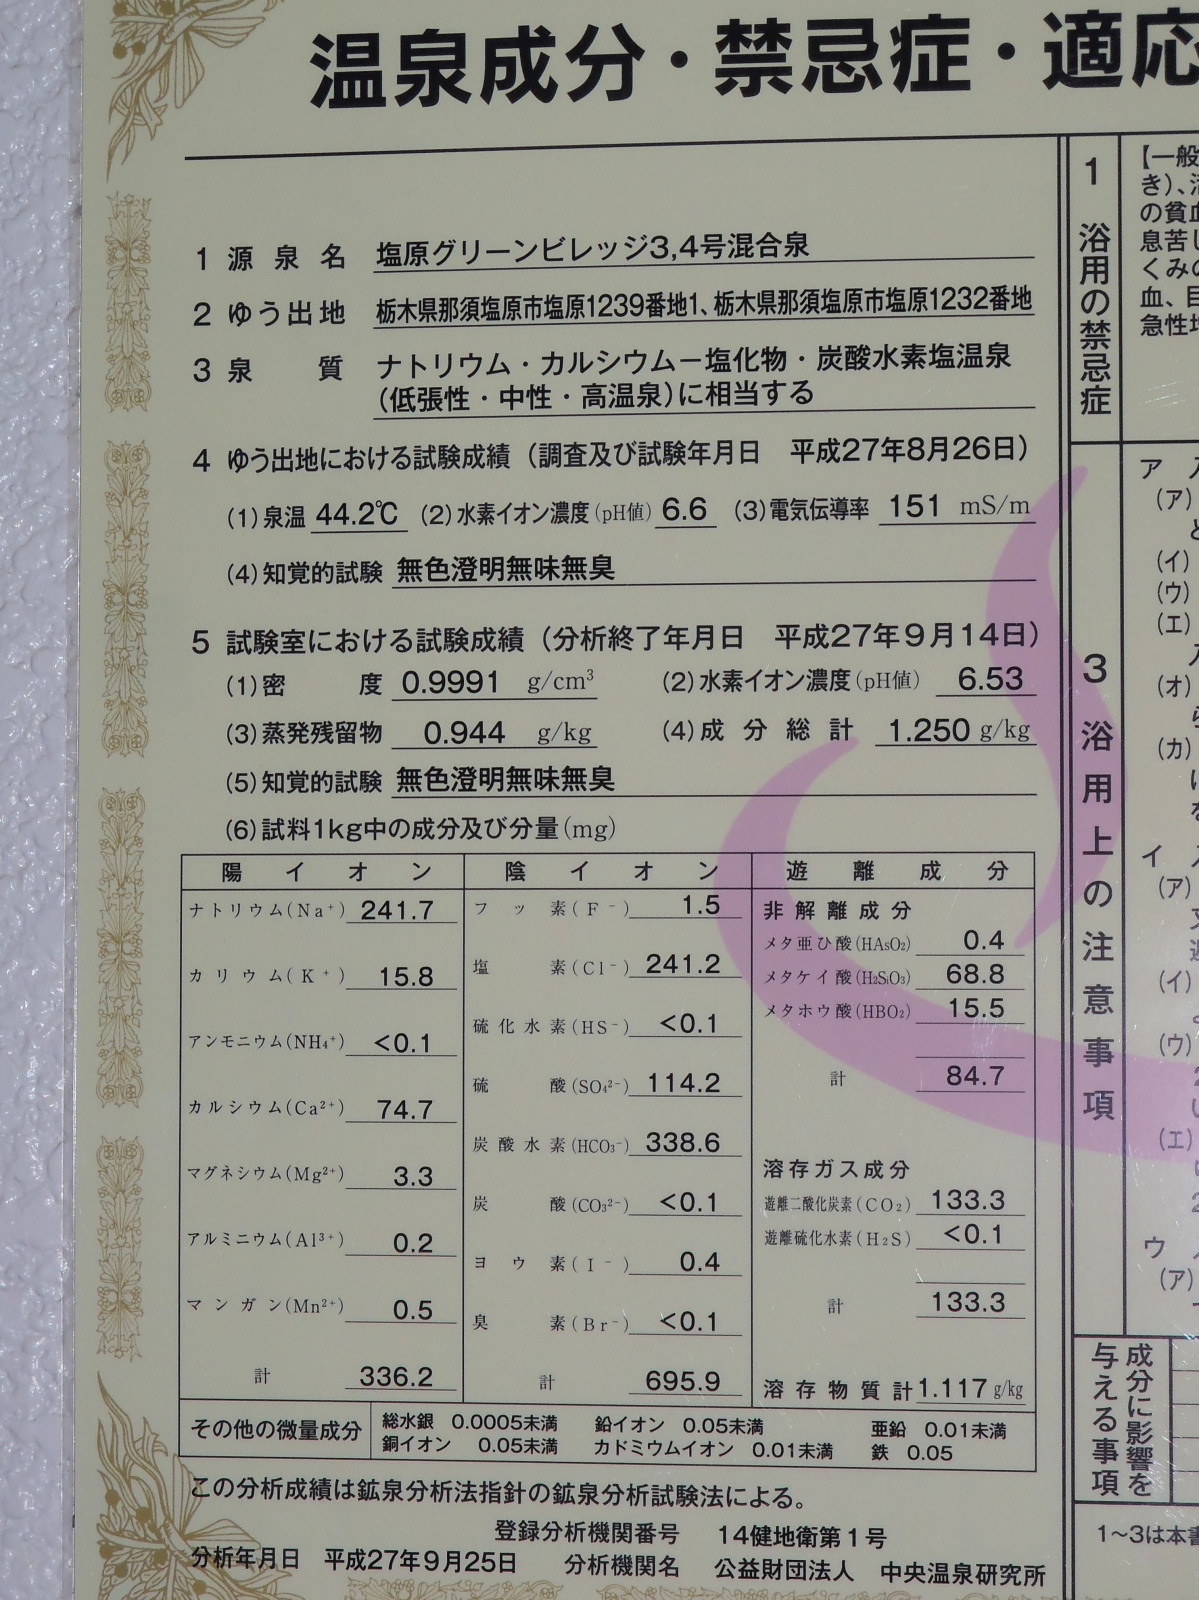 温泉成分・禁忌症・適応
1 源泉名 塩原グリーンビレッジ3,4号混合泉
2 ゆう出地 栃木県那須塩原市塩原1239番地1、栃木県那須塩原市塩原1232番地
3 泉質 ナトリウム・カルシウムー塩化物・炭酸水素塩温泉
(低張性・中性・高温泉)に相当する
4 ゆう出地における試験成績(調査及び試験年月日 平成27年8月26日)
(1)泉温 44.2℃ (2)水素イオン濃度(pH値) 6.6 (3)電気伝導率 151 mS/m
(4)知覚的試験 無色澄明無味無臭
5 試験室における試験成績(分析終了年月日 平成27年9月14日)
(1)密度 0.9991 g/cm³ (2)水素イオン濃度(pH値) 6.53
(3)蒸発残留物 0.944 g/kg (4)成分総計 1.250 g/kg
(5)知覚的試験 無色澄明無味無臭
(6)試料1kg中の成分及び分量(mg)
陽イオン
ナトリウム(Na⁺) 241.7
カリウム(K⁺) 15.8
アンモニウム(NH₄⁺) <0.1
カルシウム(Ca²⁺) 74.7
マグネシウム(Mg²⁺) 3.3
アルミニウム(Al³⁺) 0.2
マンガン(Mn²⁺) 0.5
計 336.2
陰イオン
フッ素(F⁻) 1.5
塩素(Cl⁻) 241.2
硫化水素(HS⁻) <0.1
硫酸(SO₄²⁻) 114.2
炭酸水素(HCO₃⁻) 338.6
炭酸(CO₃²⁻) <0.1
ヨウ素(I⁻) 0.4
臭素(Br⁻) <0.1
計 695.9
遊離成分
非解離成分
メタ亜ひ酸(HAsO₂) 0.4
メタケイ酸(H₂SiO₃) 68.8
メタホウ酸(HBO₂) 15.5
計 84.7
溶存ガス成分
遊離二酸化炭素(CO₂) 133.3
遊離硫化水素(H₂S) <0.1
計 133.3
溶存物質計 1.117 g/kg
その他の微量成分
総水銀 0.0005未満 鉛イオン 0.05未満 亜鉛 0.01未満
銅イオン 0.05未満 カドミウムイオン 0.01未満 鉄 0.05
この分析成績は鉱泉分析法指針の鉱泉分析試験法による。
登録分析機関番号 14健地衛第1号
分析年月日 平成27年9月25日 分析機関名 公益財団法人 中央温泉研究所
1 浴用の禁忌症
【一般
き)、
の貧血
息苦し
くみの
血、目
急性
3 浴用上の注意事項
ア
(ア)
と
(イ)
(ウ)
(エ)
(オ)
(カ)
イ
(ア)
(イ)
(ウ)
(エ)
ウ
(ア)
成分に影響を
与える事項
1〜3は本書